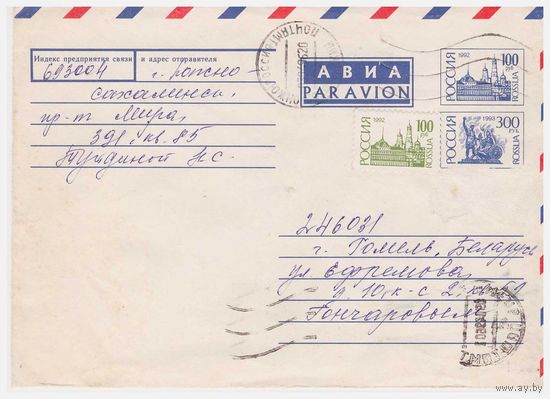 Индекс предприятия связи и адрес отправителя
693004 г. Южно-
сахалинск
пр-т Мира,
391, кв. 85
АВИА
PAR AVION
1992
100
руб
РОССИЯ
ROSSIJA
1992
100
руб
РОССИЯ
ROSSIJA
1993
300
руб
РОССИЯ
ROSSIJA
246031
г. Гомель, Беларусь
ул Ефремова,
д. 10, к-с 2, кв
Гончаровым
www.ay.by